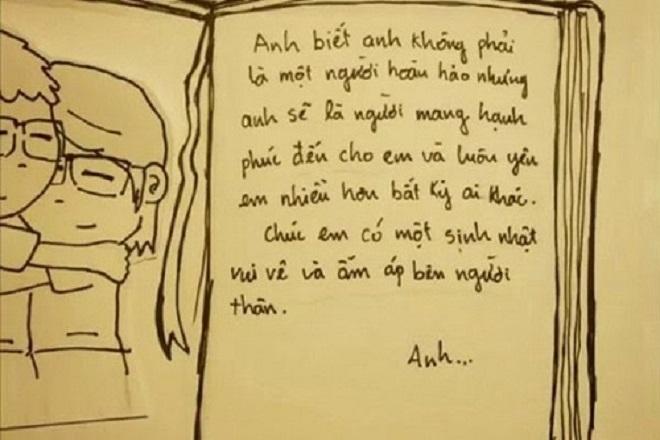 Anh biết anh không phải
là một người hoàn hảo nhưng
anh sẽ là người mang hạnh
phúc đến cho em và luôn yêu
em nhiều hơn bất kỳ ai khác.
Chúc em có một sinh nhật
vui vẻ và ấm áp bên người
thân.
Anh...